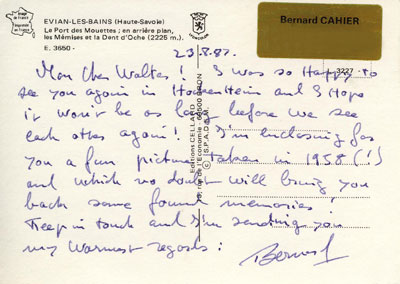 Image de France
EVIAN-LES-BAINS (Haute-Savoie)
Le Port des Mouettes ; en arrière plan,
les Mémises et la Dent d'Oche (2225 m.).
E. 3550 -
Bernard CAHIER
3227
23.8.82.
Mon Cher Walter! I was so Happy to
see you again in Hockenheim and I Hope
it won't be as long before we see
each other again! I'm enclosing for
you a fun picture taken in 1958 (!)
and which no doubt will bring you
back some found memories!
Keep in touch and I'm sending you
my Warmest regards:
Bernard
Editions CELLARD
BRON
© S.P.A.D.E.M.